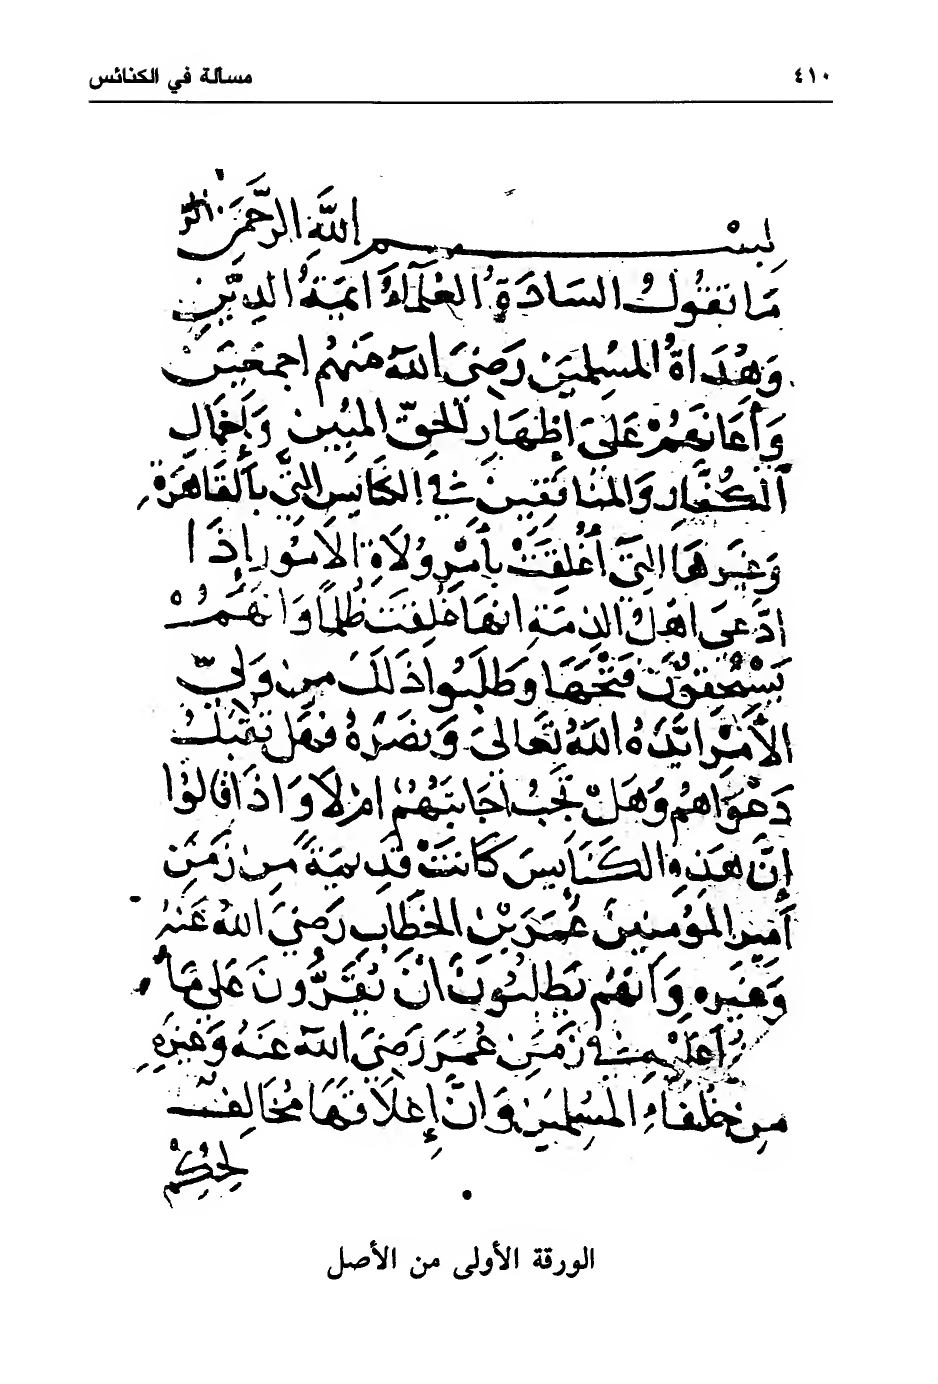 ٤١٠ مسألة في الكنائس
بسم الله الرحمن الر
مَا تقولُ السَادَةُ العُلَمَآءُ ايمَةُ الدِّينِ
وَهُدَاةُ المُسْلِمينَ رَضِىَ اللهُ عَنهُم اجمَعِينَ
وَأَعَانَهُمْ عَلَى إِظهَارِ الْحَقِّ المُبِينِ وَإِخمَالِ
الْكُفَّارِ وَالمنَافقِينَ في الكنايسِ التي بالقَاهرَةِ
وَغَيرهَا التي أُغْلِقَتْ بأَمْرِ وُلَاةِ الأمُورِ إِذَا
ادّعىَ اهْلُ الذمَةِ انهَا غُلِقَت ظُلمًا وَانهُمْ
يَسْتَحِقُّونَ فَتْحَهَا وَطَلَبُوا ذَلكَ مِن وَليِّ
الأَمْرِ ايَّدَهُ اللهُ تعَالىَ وَنصَرَهُ فهَل تُقبَلُ
دَعْوَاهُم وَهَلْ تجَبُ اجَابتَهُمْ امْ لَا وَاذَا قالُوا
انَّ هَذِهِ الكنَايسَ كَانَتْ قَديمَةً مِن زَمَن
أَمير المؤمنين عُمَرَ بْن الخطَابِ رَضيَ اللهُ عَنهُ
وَغيَرهِ وَانهُم يَطلبُونَ أَنْ يُقَرُّونَ عَلى مَا
في زَمَن عُمَرَ رَضىَ اللهُ عَنهُ وَغَيرِهِ
مِن خُلفَاءِ المُسْلِمينَ وَانَّ إِغلَاقَهَا مُخَالِفٌ
لحُكْم
الورقة الأولى من الأصل